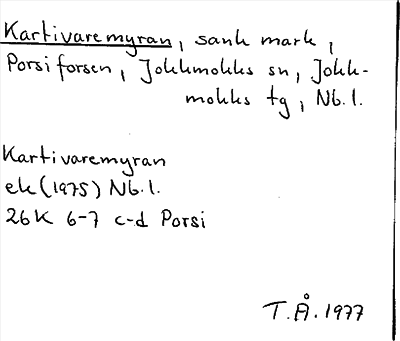 Kartivaremyran, sank mark,
Porsiforsen, Jokkmokks sn, Jokk-
mokks tg, Nb. l.
Kartivaremyran
ek (1975) Nb. l.
26K 6-7 c-d Porsi
T. Å. 1977